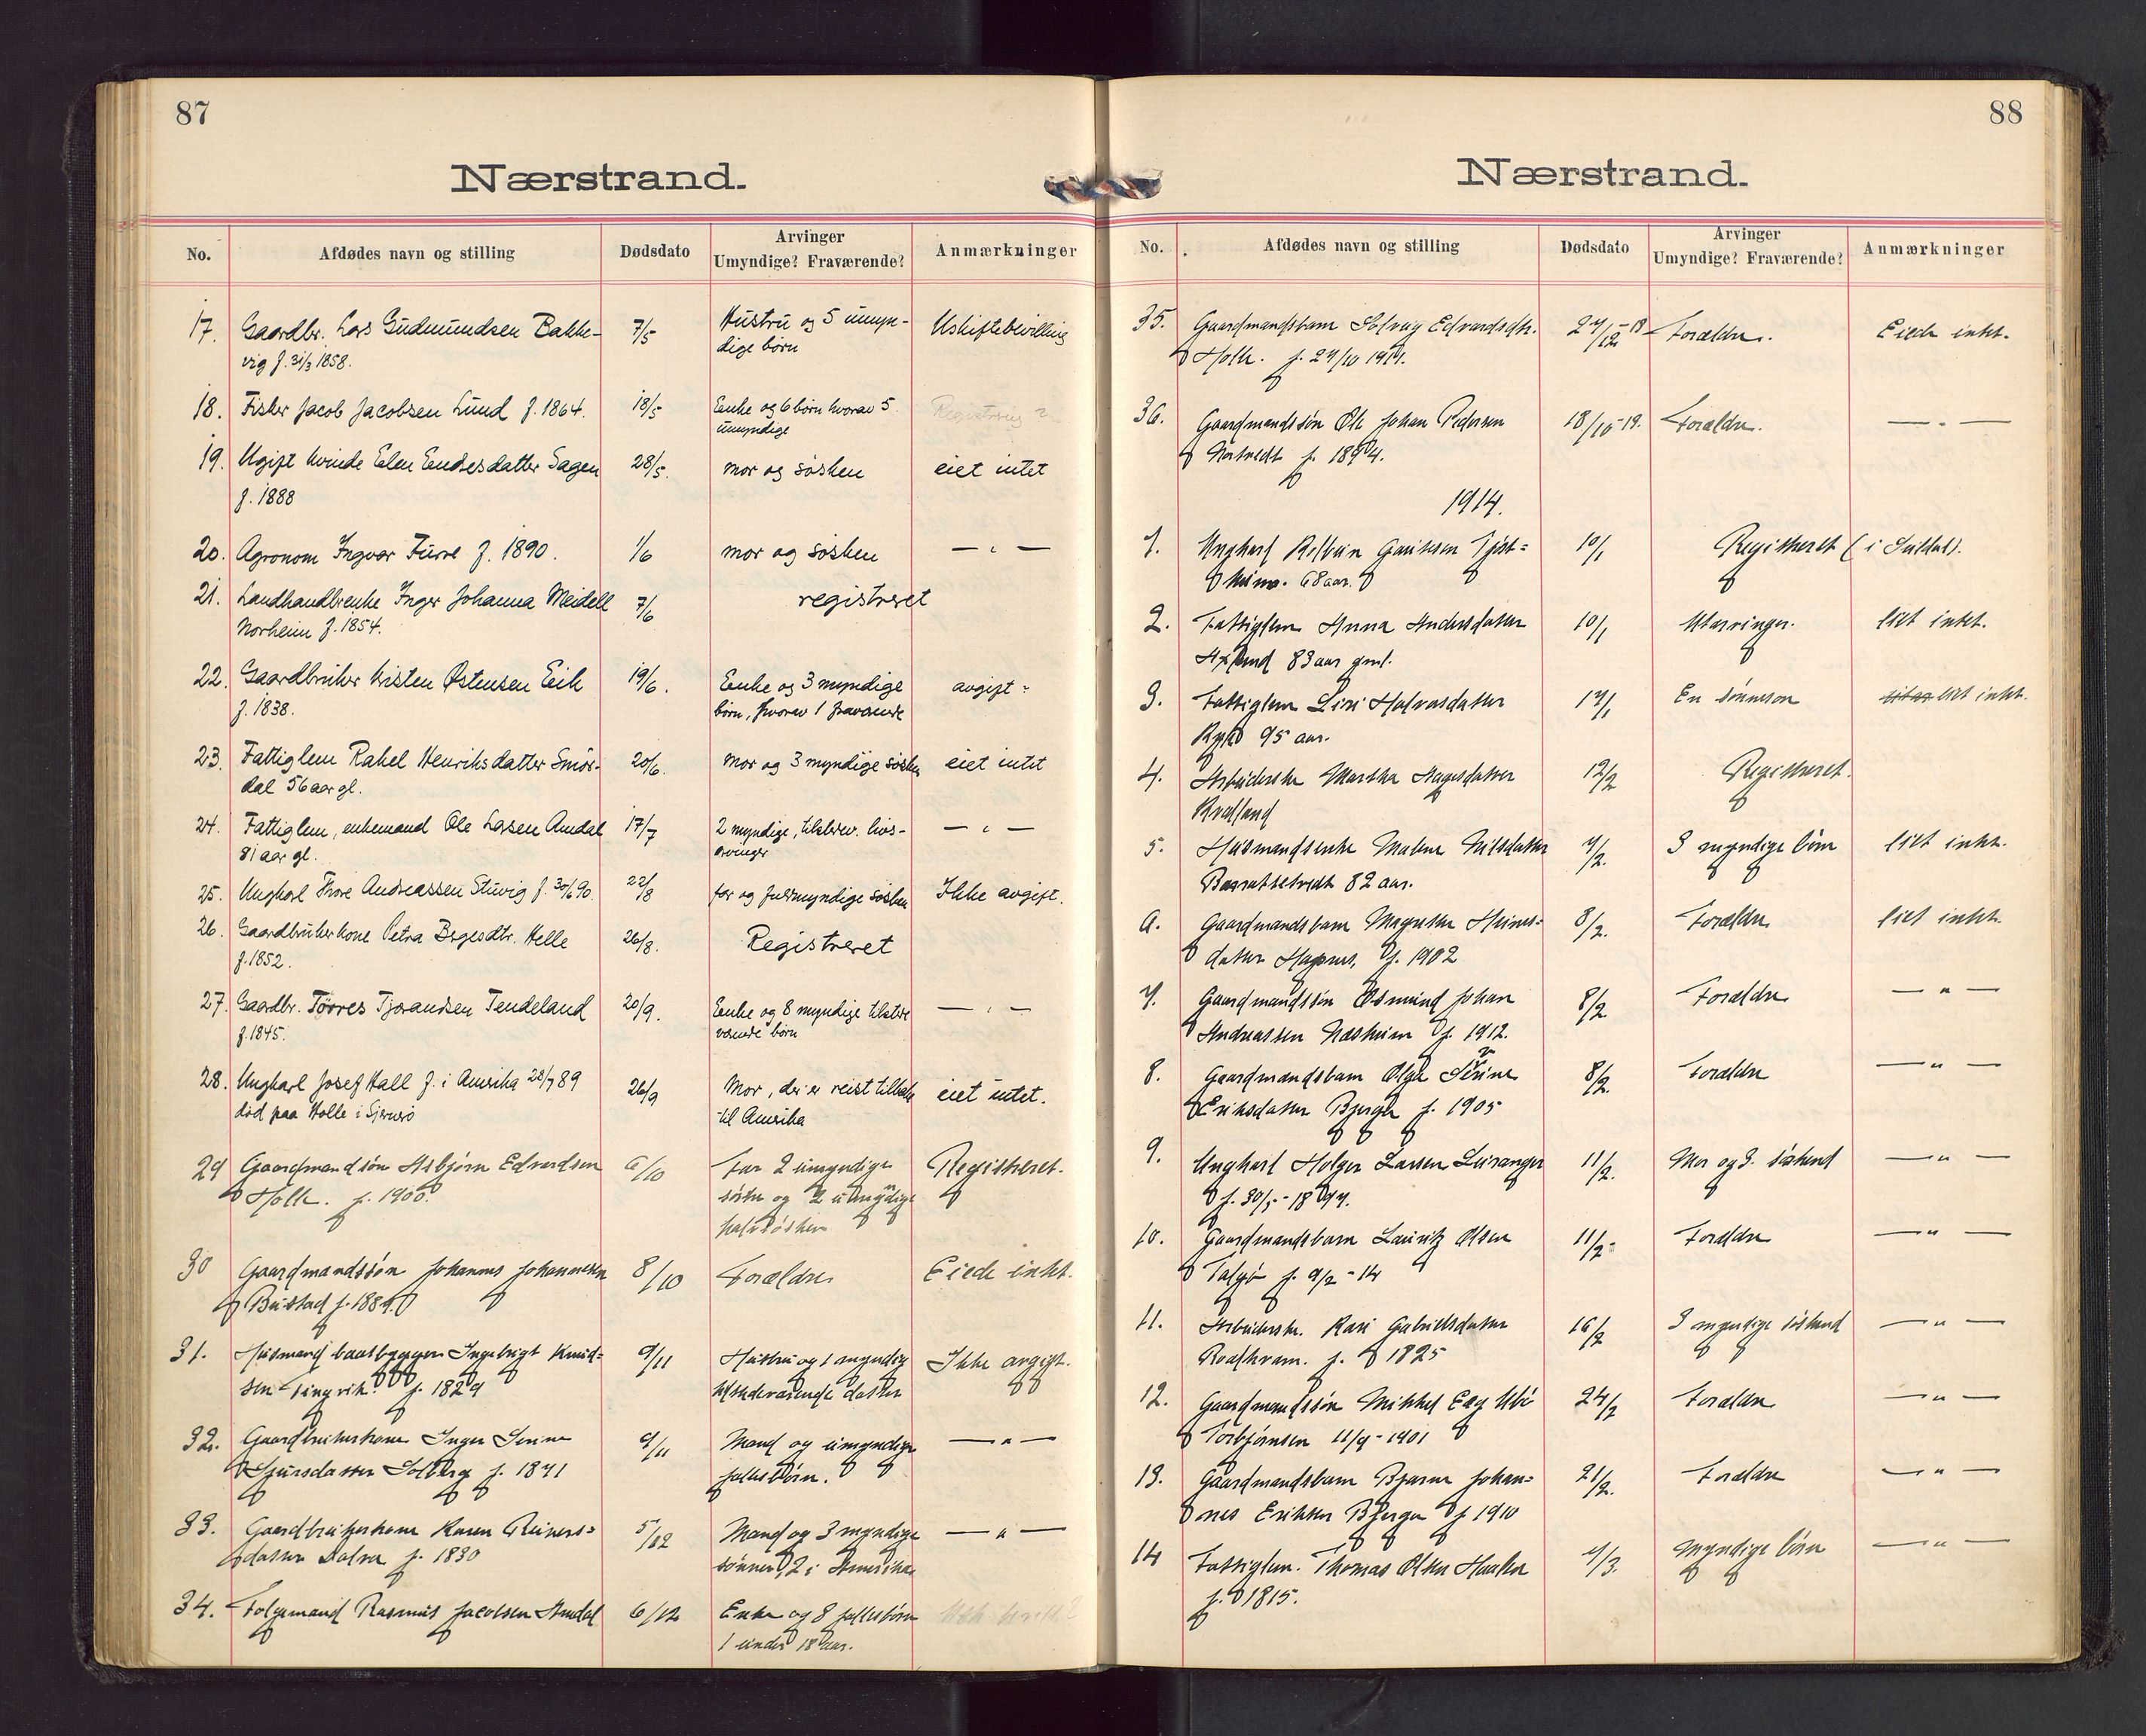 87
Nærstrand.
No. Afdødes navn og stilling Dødsdato Arvinger Umyndige? Fraværende? Anmærkninger
17. Gaardbr. Lars Gudmundsen Bakke- 7/5 Hustru og 5 umyn- Uskiftebevilling
vig f. 31/3 1858. dige børn
18. Fisker Jacob Jacobsen Lund f. 1864. 18/5 Enke og 6 børn hvorav 5 Registrering ?
umyndige
19. Ugift kvinde Elen Endresdatter Sagen 28/5. mor og søsken eiet intet
f. 1888
20. Agronom Ingvar Furre f. 1890. 1/6 mor og søsken — " —
21. Landhandlerenke Inger Johanna Meidell 7/6 registreret
Norheim f. 1854.
22. Gaardbruker Kristen Østensen Eik 19/6. Enke og 3 myndige avgift?
f. 1838. børn, hvorav 1 fraværende
23. Fattiglem Rakel Henriksdatter Smør- 20/6. Mor og 3 myndige søsken eiet intet
dal 56 aar gl.
24. Fattiglem, enkemand Ole Larsen Amdal 17/7 2 myndige, tilstdev. livs- — " —
81 aar gl. arvinger
25. Ungkarl Thore Andreassen Stuvig f. 30/6 90. 22/8 far og fuldmyndige søsken Ikke avgift.
26. Gaardbrukerkone Petra Bergesdtr. Helle 26/8. Registreret
f. 1852.
27. Gaardbr. Tørres Tjerandsen Tendeland 20/9. Enke og 8 myndige tilstde — " —
f. 1845. værende børn
28. Ungkarl Josef Hall f. i Amerika 28/7 89 26/9 Mor, der er reist tilbake eiet intet.
død paa Halle i Sjernerø til Amerika
29 Gaardmandssøn Asbjørn Edvardsen 6/10 Far 2 umyndige Registreret.
Holle. f. 1900. søsken og 2 umyndige
halvsøsken
30 Gaardmandssøn Johannes Johannesen 8/10 Forældre Eiede intet.
Bustad f. 1889.
31. Husmand baatbygger Ingebrigt Knud- 9/11 Hustru og 1 myndig Ikke avgift.
sen Tingvik. f. 1829 tilstedeværende datter
32. Gaardbrukerkone Inger Serine 9/11 Mand og umyndige — " —
Sjursdatter Solberg f. 1871 fællesbørn.
33. Gaardbrukerkone Karen Reiners- 5/12 Mand og 3 myndige — " —
datter Dalva f. 1830 sønner, 2 i Amerika
34. Folgemand Rasmus Jacobsen Amdal 6/12 Enke og 8 fællesbørn
1 under 18 aar.
88
Nærstrand.
No. Afdødes navn og stilling Dødsdato Arvinger Umyndige? Fraværende? Anmærkninger
35. Gaardmandsbarn Solveig Edvardsdtr. 27/12-13 Forældre. Eiede intet.
Holle. f. 24/10 1911.
36. Gaardmandssøn Ole Johan Pedersen 18/10-13. Forældre. — " —
f. 1894.
1914.
1. Ungkarl Gautesen Tjøst- 10/1 Registreret (i Suldal).
heim. 68 aar.
2. Fattiglem Anna Andersdatter 10/1 Utarvinger. Eiet intet.
83 aar gml.
3. Fattiglem Siri Halvorsdatter 17/1 En sønneson Eiet intet.
95 aar.
4. Arbeiderske Martha Aagesdatter 12/2 Registreret.
5. Husmandsenke Malene Nilsdatter 4/2. 3 myndige børn Eiet intet.
82 aar.
6. Gaardmandsbarn Magrethe Heines- 8/2. Forældre Eiet intet.
datter f. 1902
7. Gaardmandssøn Osmund Johan 8/2 Forældre — " —
Andreassen Næsheim f. 1912.
8. Gaardmandsbarn Olga Serine 8/2. Forældre — " —
Eriksdatter Bjerge f. 1905
9. Ungkarl Holger Larsen Leiranger 11/2. Mor og 3. søskend — " —
f. 30/5-1894.
10. Gaardmandsbarn Lauritz Olsen 11/2- Forældre — " —
Talgø f. 9/2-14
11. Arbeiderske. Kari Gabrielsdatter 16/2 3 myndige søskend — " —
f. 1825
12. Gaardmandssøn Mikkel Eeg Ubø 24/2 Forældre — " —
Torbjørnsen 11/9-1901
13. Gaardmandsbarn Bjarne Johan- 21/2. Forældre — " —
nes Eriksen Bjerge f. 1910
14 Fattiglem. Thomas Olsen 4/3. Myndige børn — " —
f. 1815.